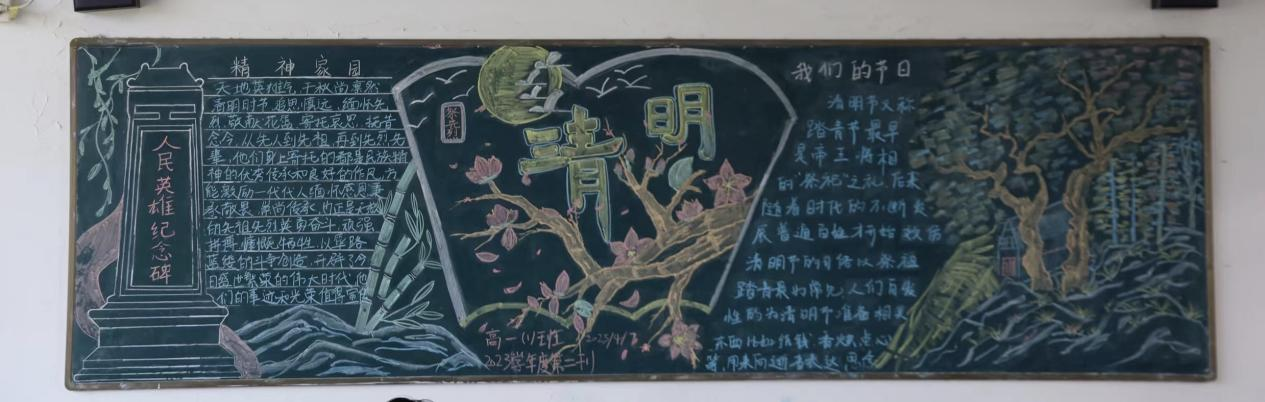 人民英雄纪念碑
精神家园
天地英雄气，千秋尚凛然
清明时节，追思慎远、缅怀先
烈，敬献花蓝，寄托哀思，抚昔
念今，从先人到先祖，再到先烈先
辈，他们身上寄托的都是民族精
神的优秀传承和良好的作风，方
能激励一代代人缅怀感恩
承敬畏，崇尚传承
的先祖先烈英勇奋斗，顽强
拼搏，慷慨牺牲，以筚路
蓝缕的斗争创造，开辟了今
日盛世繁荣的伟大时代，他
们的事迹和光荣值得
清明
高一(1)班
2023学年度第二刊
我们的节日
清明节又称
踏青节最早
是帝王将相
的"祭祀"之礼，后来
随着时代的不断发
展普通百姓才开始效仿
清明节的习俗以祭祖
踏青最为常见，人们自发
性的为清明节准备相关
东西比如纸钱 香火 点心
等，用来向逝者表达思念